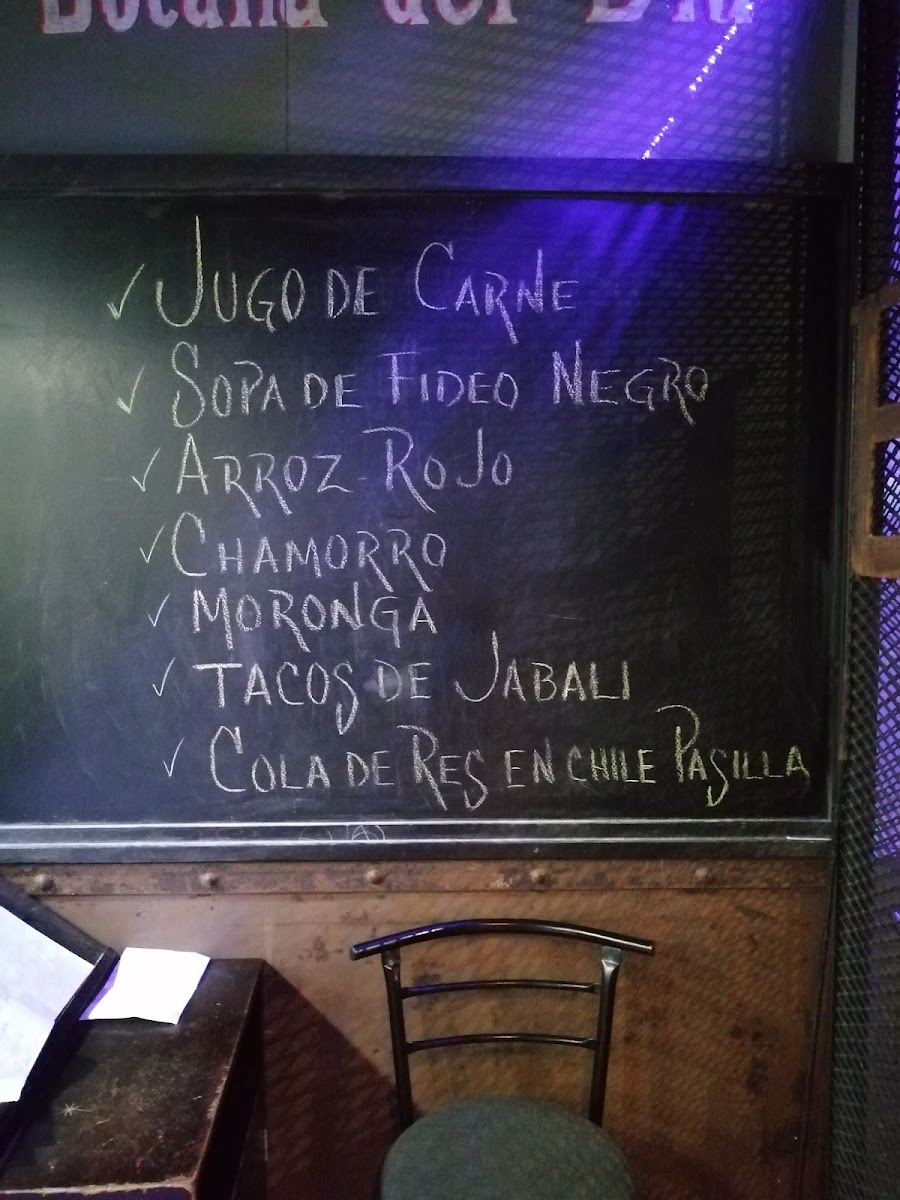 Botana del Día
✓ JUGO DE CARNE
✓ SOPA DE FIDEO NEGRO
✓ ARROZ ROJO
✓ CHAMORRO
✓ MORONGA
✓ TACOS DE JABALI
✓ COLA DE RES EN CHILE PASILLA